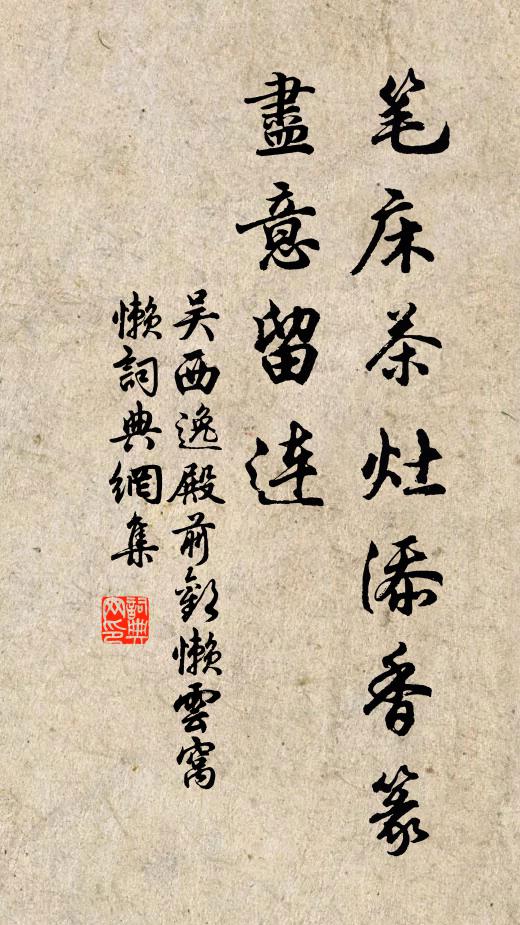 笔床茶灶添香篆
盡意留连
吴西逸殿前歡懒雲窩
懒詞典網集
詞典网印